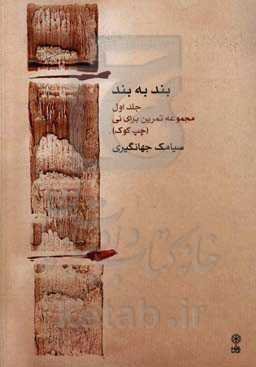 بند به بند
جلد اول
مجموعه تمرین برای نی
(چپ کوک)
سیامک جهانگیری
ketab.ir